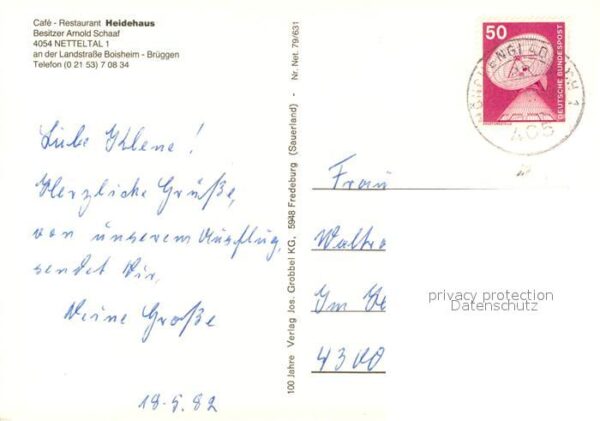 Café - Restaurant Heidehaus
Besitzer Arnold Schaaf
4054 NETTETAL 1
an der Landstraße Boisheim - Brüggen
Telefon (0 21 53) 7 08 34
Liebe
Herzliche Grüße,
von unserem Ausflug,
sendet Dir,
Deine Große
18.5.82
100 Jahre Verlag Jos. Grobbel KG, 5948 Fredeburg (Sauerland) - Nr. Net. 79/631
50
DEUTSCHE BUNDESPOST
405
Frau
Waltro
Im
4300
privacy protection
Datenschutz